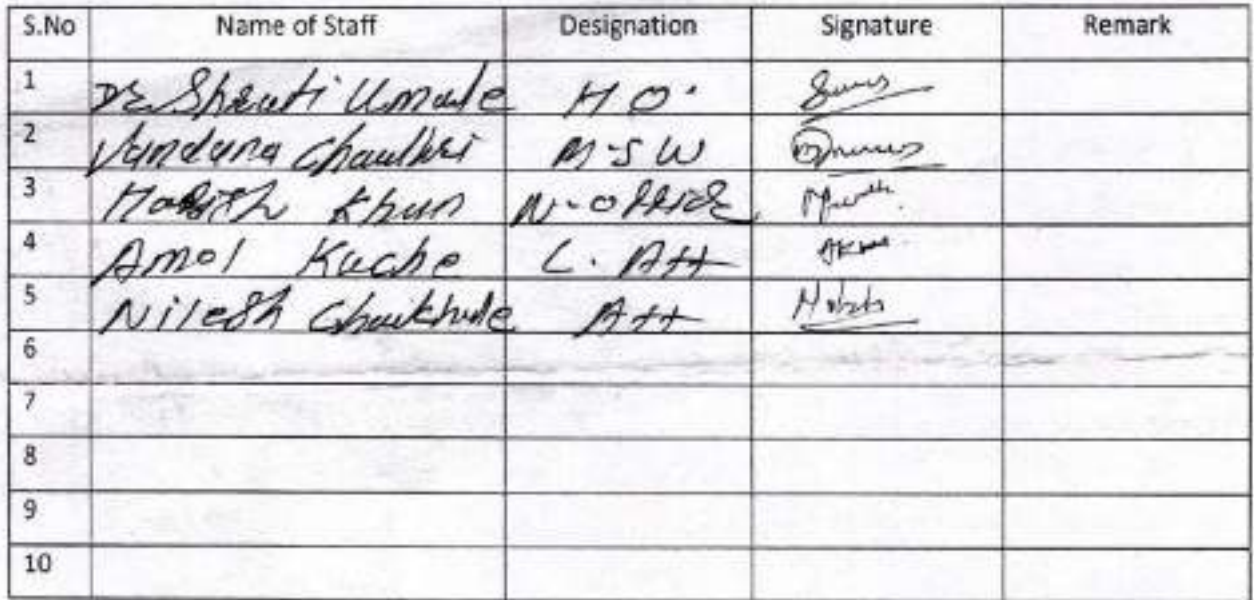 S.No Name of Staff Designation Signature Remark
1 Dr Shruti Umale H O.
2 Vandana Chaudhri M-S W
3 Khan N-office
4 Amol Kache L. Att
5 Nilesh Ghaikhule Att
6
7
8
9
10